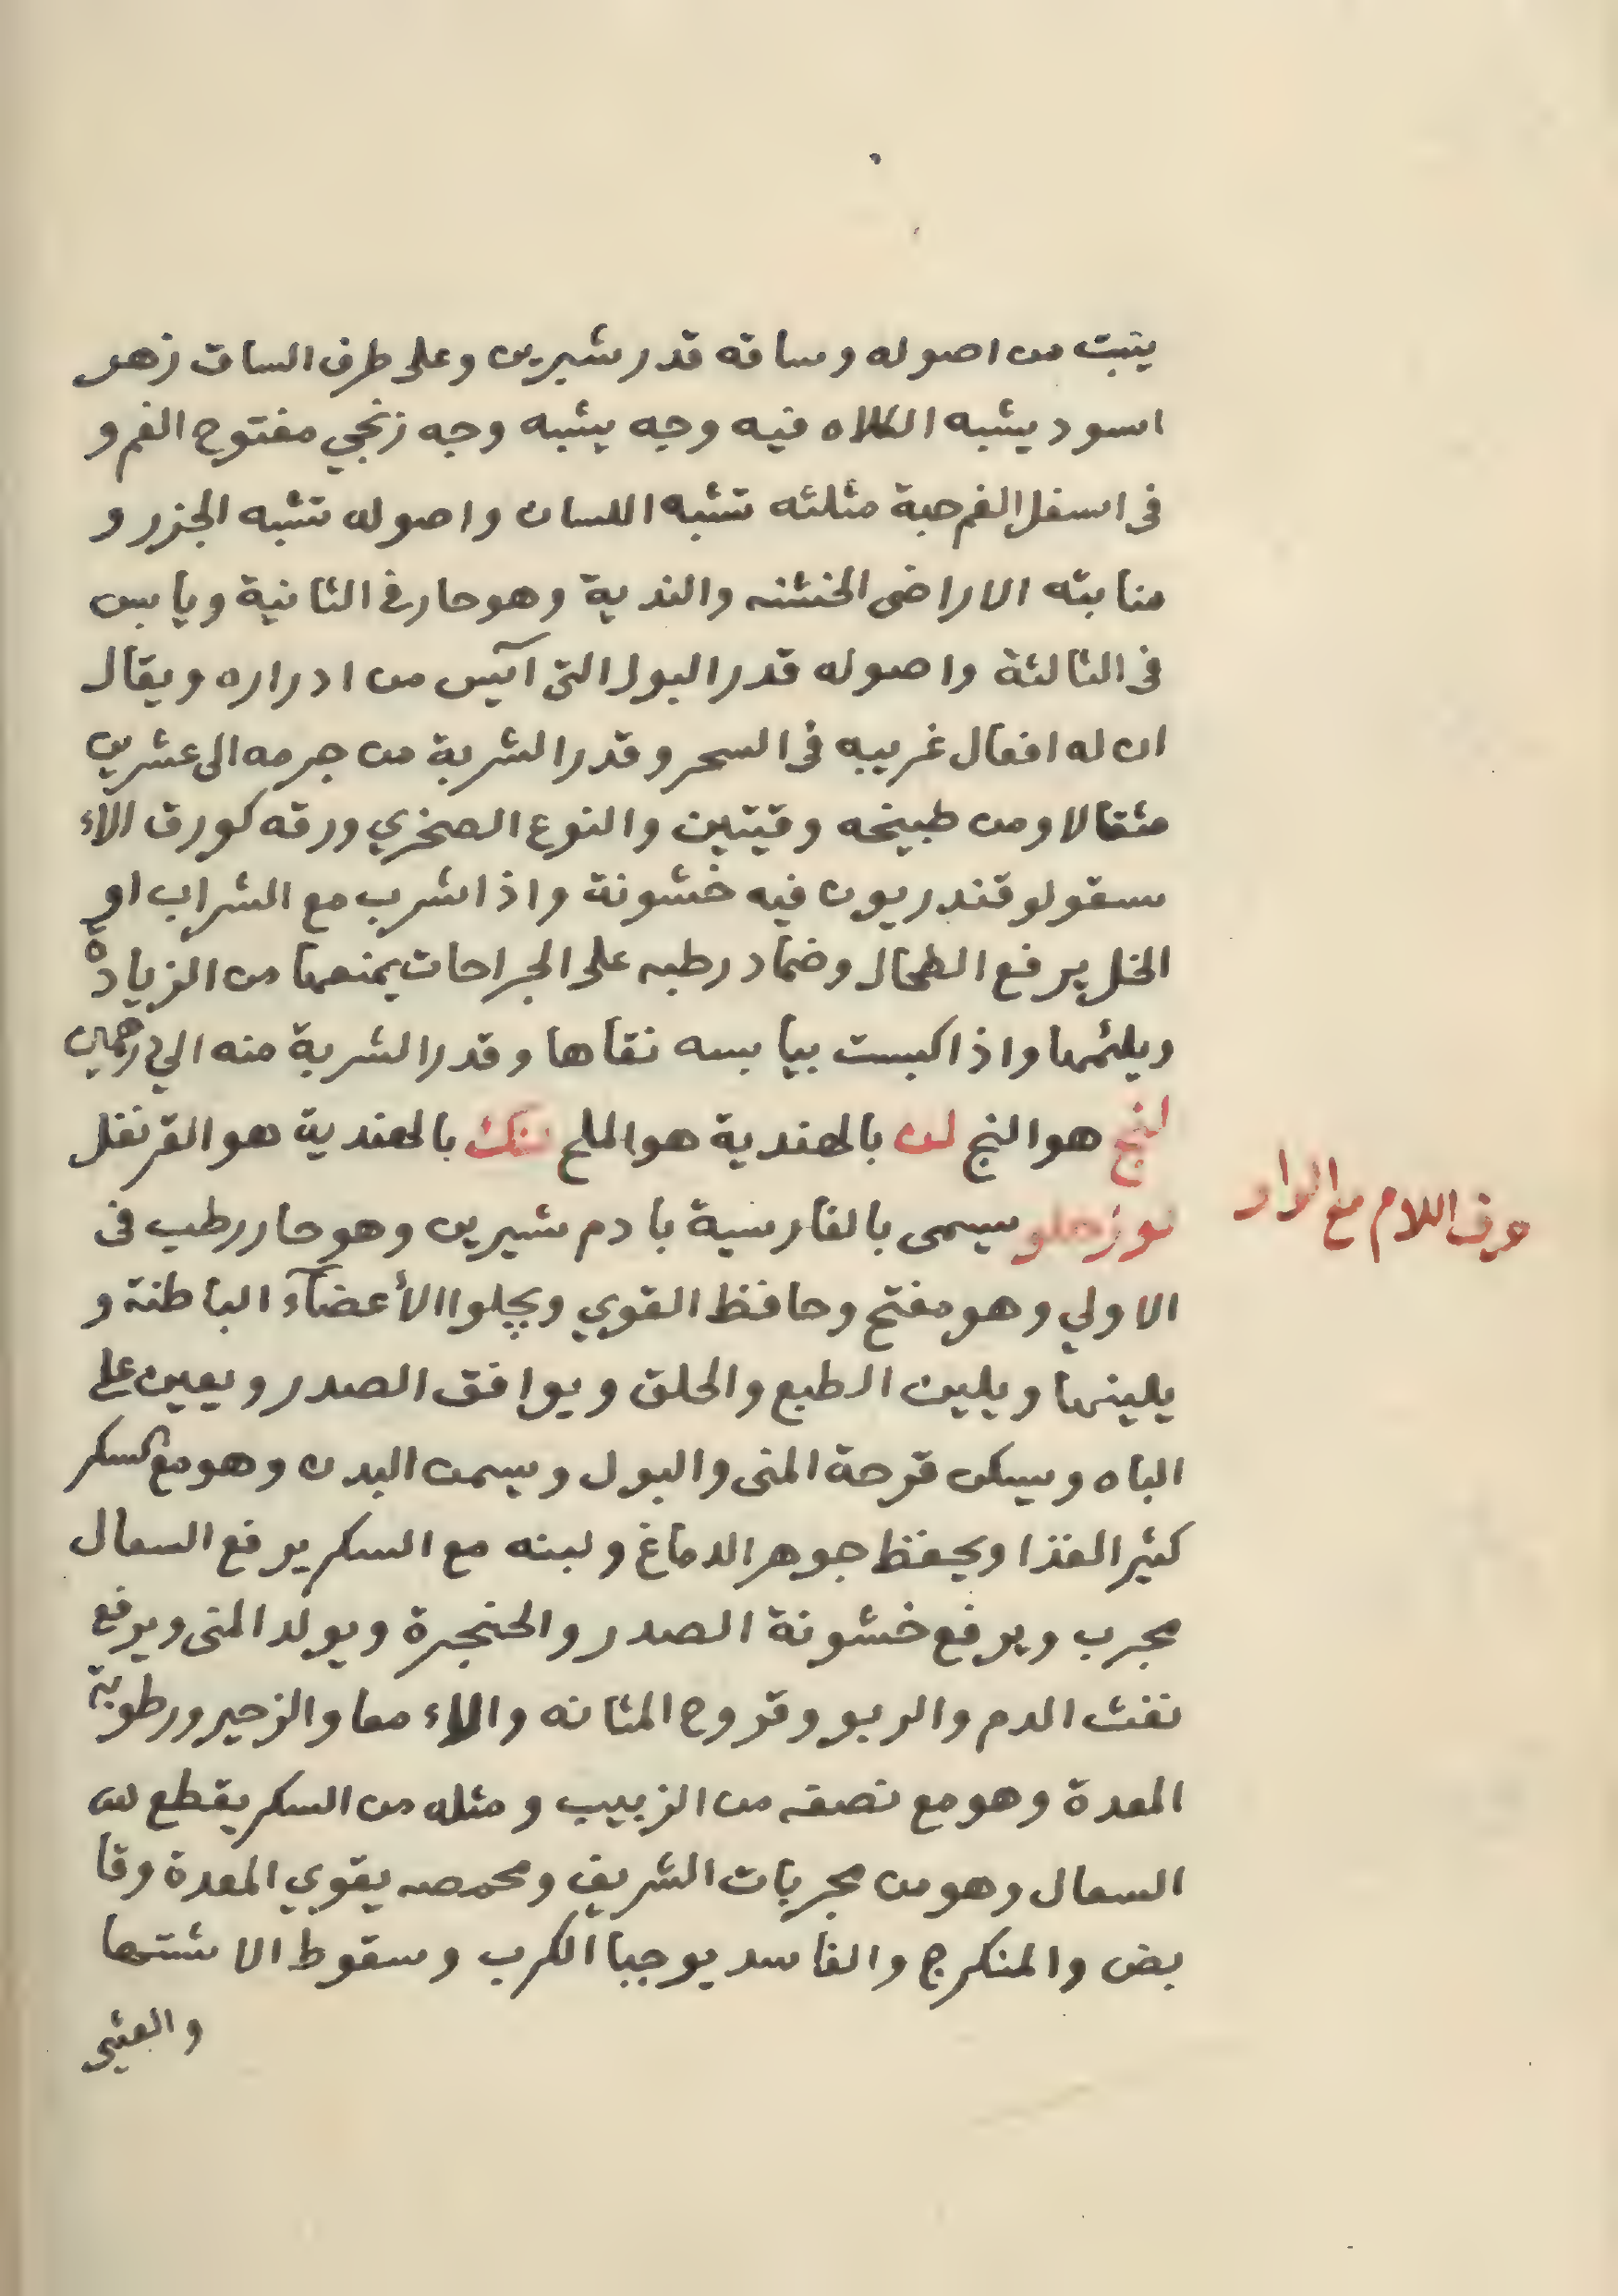 ينبت من اصوله وساقه قدر شبرين وعلى طرف الساق زهر
اسود يشبه الكلاه فيه وجه يشبه وجه زنجي مفتوح الفم و
فى اسفل الفم حبة مثلثه تشبه اللسان واصوله تشبه الجزر و
منابته الاراضى الخشنه والندية وهو حار في الثانية ويابس
فى الثالثة واصوله قدر البول التى آيس من ادراره ويقال
ان له افعال غريبه فى السحر وقدر الشربة من جرمه الى عشرين
مثقالا ومن طبيخه وقيتين والنوع الصخري ورقه كورق الاء
سقولوقندريون فيه خشونة واذا شرب مع الشراب او
الخل يرفع الطحال وضماد رطبه على الجراحات يمنعها من الزيادة
ويلئمها واذا كبست بيابسه نقاها وقدر الشربة منه الي درهمين
لنج هو النج لن بالهندية هو الملح لنك بالهندية هو القرنفل
حرف اللام مع الواو
لوز حلو سيمى بالفارسية بادم شيرين وهو حار رطب فى
الاولي وهو مفتح وحافظ القوي ويجلوا الأعضآء الباطنة و
يلينها ويلين الطبع والحلق ويوافق الصدر ويعين على
الباه ويسكن قرحة المنى والبول ويسمن البدن وهو مع السكر
كثير الغذا ويحفظ جوهر الدماغ ولبنه مع السكر يرفع السعال
مجرب ويرفع خشونة الصدر والحنجرة ويولد المنى ويرفع
نفث الدم والربو وقروح المثانه والاء معا والزحير ورطوبة
المعدة وهو مع نصفه من الزبيب ومثله من السكر يقطع
السعال وهو من مجربات الشريف ومحمصه يقوي المعدة وقا
بض والمنكرج والفاسد يوجبا الكرب وسقوط الاشتها
والغثي